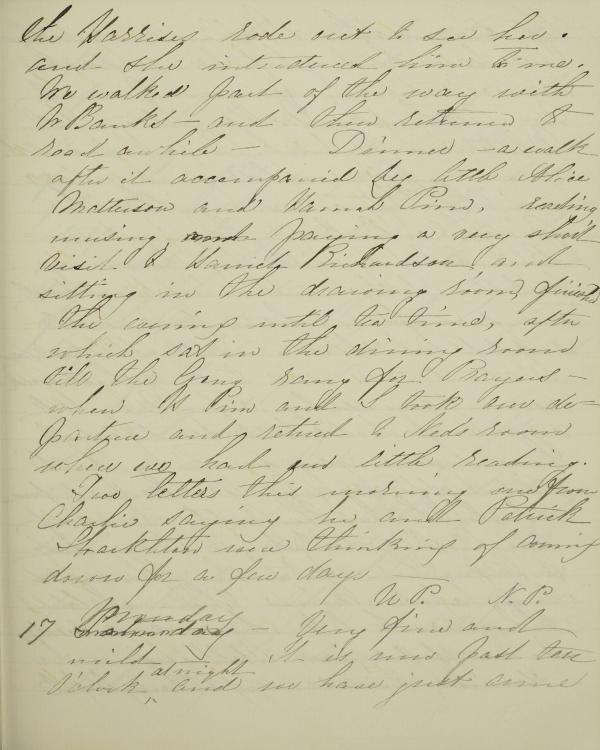 the Harrises rode out to see her.
and she introduced him to me.
We walked part of the way with
W Banks — and then returned &
read awhile — Dinner — a walk
after it accompanied by little Alice
Matterson and Hannah Pim, reading,
musing, paying a very short
visit to Richardson and
sitting in the drawing room, finished
the evening until tea time, after
which sat in the dining room
till the Gong rang for Prayers —
when H Pim and I took our de-
parture and retired to Ned's room
where we had our little reading.
Two letters this morning one from
Charlie saying he and Patrick
were thinking of coming
down for a few days
N.P.
17 Monday — Very fine and
mild It is now past ten
O'clock at night and we have just come